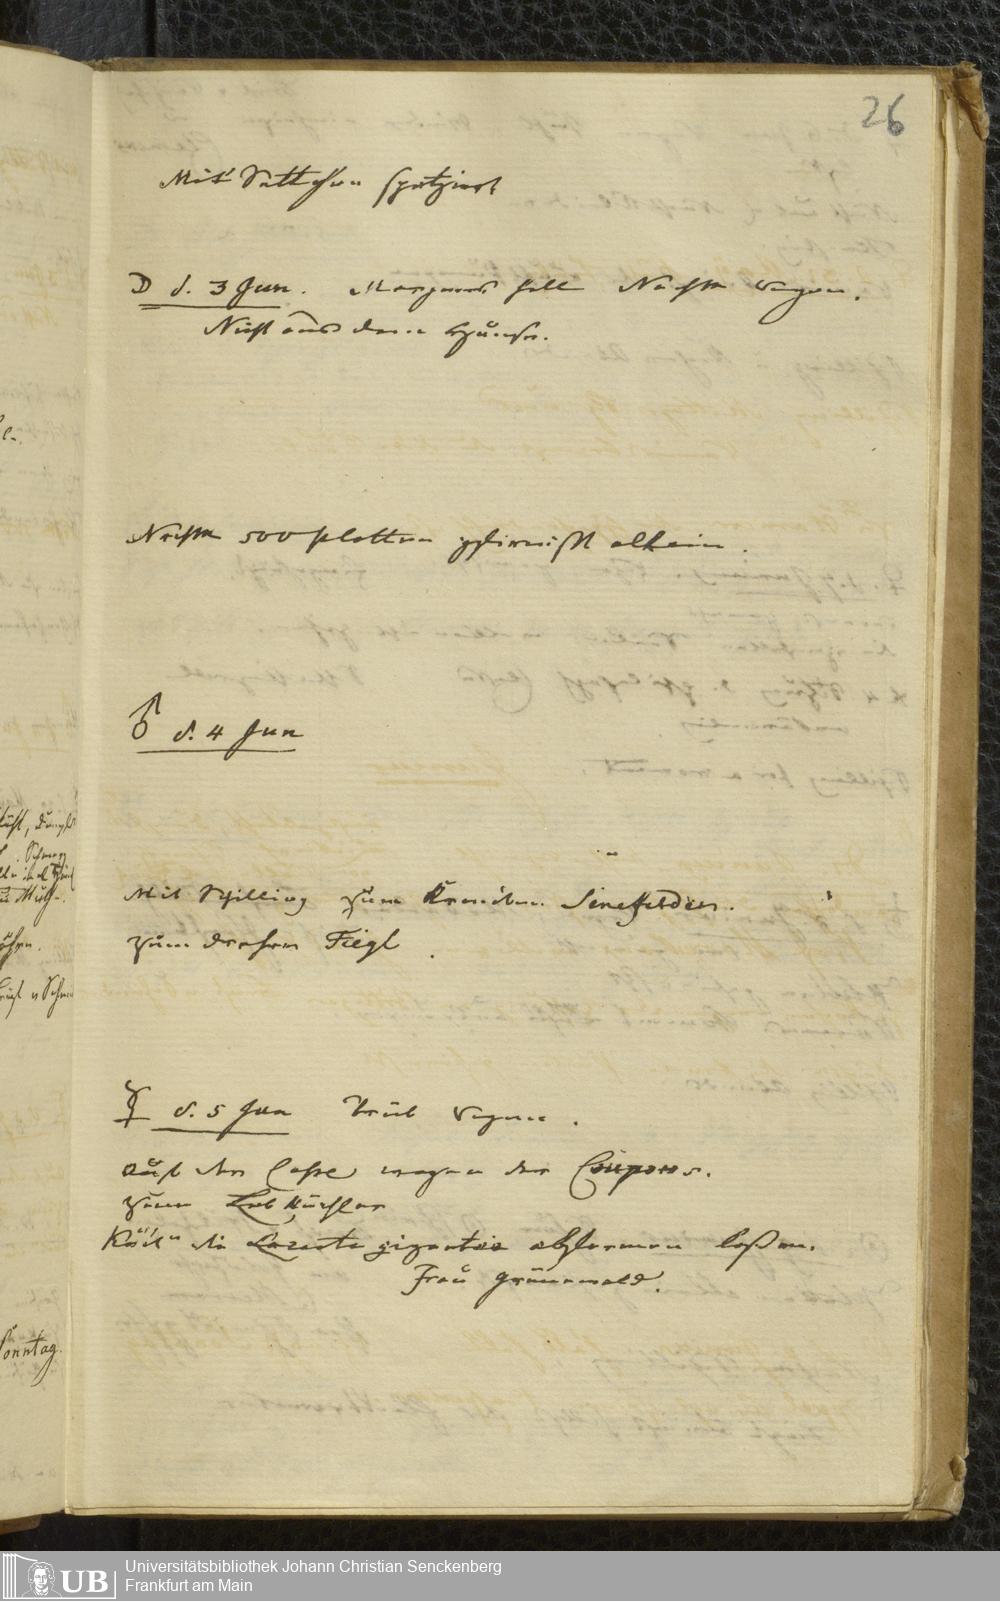 26
Mit Settchen spatziert
☽ d. 3 Jun. Morgens hell Nachm Regen.
Nicht aus dem Hause.
Nachm 500 platten gefirnißt allein.
♂ d. 4 Jun
Mit Schilling zum Kranken Senefelder.
zum Dreher Fiegl.
☿ d. 5 Jun Trüb Regen.
auf der Casse wegen der Coupons.
zum
die Lacerta gigantea abformen laßen.
Frau Grünewald.
Sonntag.
UB
Universitätsbibliothek Johann Christian Senckenberg
Frankfurt am Main